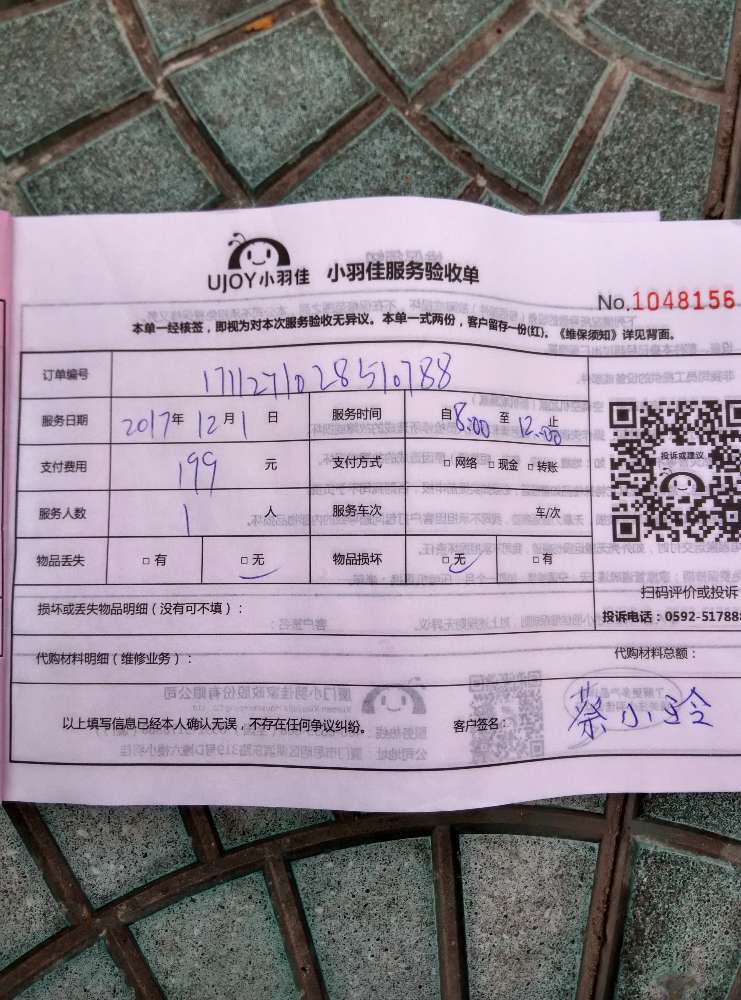 UJOY小羽佳 小羽佳服务验收单
No.1048156
本单一经核签，即视为对本次服务验收无异议。本单一式两份，客户留存一份(红)。《维保须知》详见背面。
订单编号 1711271028510788
服务日期 2017年 12月 1日 服务时间 自8:00至12:00止
支付费用 199 元 支付方式 □网络 □现金 □转账
投诉或建议
服务人数 1 人 服务车次 车/次
物品丢失 □有 □无 物品损坏 □无 □有
扫码评价或投诉
损坏或丢失物品明细（没有可不填）：
投诉电话：0592-517888
代购材料明细（维修业务）： 代购材料总额：
以上填写信息已经本人确认无误，不存在任何争议纠纷。 客户签名： 蔡小玲